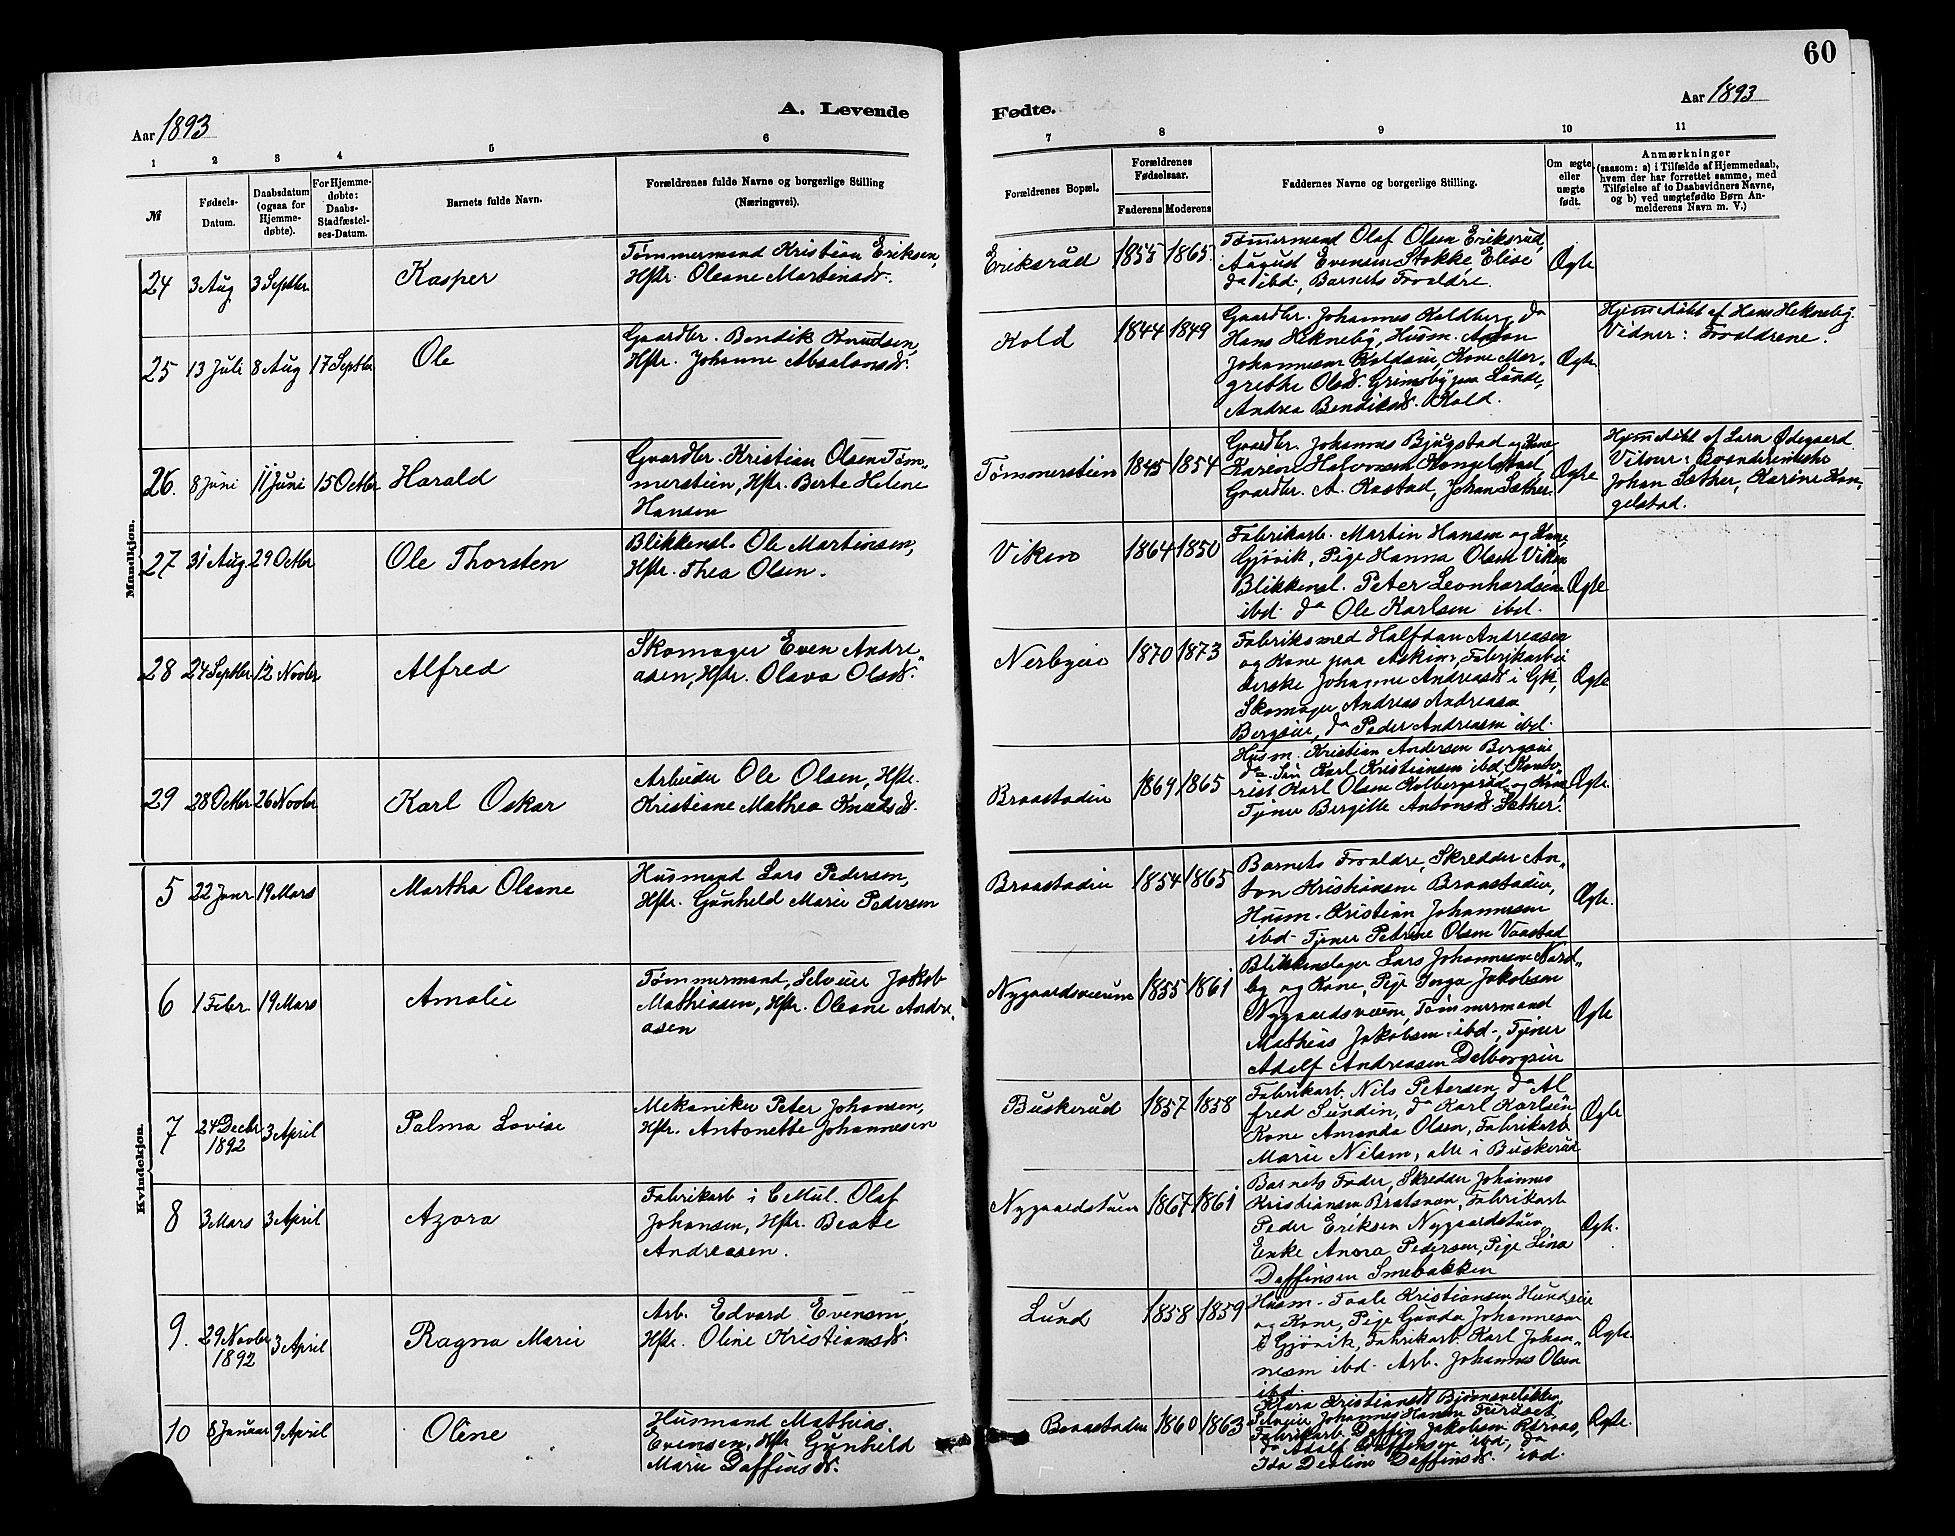 60
Aar 1893
A. Levende
Fødte.
Aar 1893
1 2 3 4 5 6
7 8 9 10 11
№
Fødsels-
Datum.
Daabsdatum
(ogsaa for
Hjemme-
døbte).
For Hjemme-
døbte:
Daabs-
Stadfæstel-
ses-Datum.
Barnets fulde Navn.
Forældrenes fulde Navne og borgerlige Stilling
(Næringsvei).
Forældrenes Bopæl.
Forældrenes
Fødselsaar.
Faderens Moderens
Faddernes Navne og borgerlige Stilling.
Om ægte
eller
uægte
født.
Anmærkninger
(saasom: a) i Tilfælde af Hjemmedaab,
hvem der har forrettet samme, med
Tilføielse af to Daabsvidners Navne,
og b) ved uægtefødte Børn An-
melderens Navn m. V.)
Mandkjøn.
24 3 Aug 3 Septbr Kasper
Tømmermand Kristian Eriksen,
Hstr. Oleane Martinsd.
Eriksrud 1855 1865
Tømmermand Olaf Olsen Eriksrud,
August Evensen Stokke Elise
do ibd., Barnets Forældre.
Ægte
25 13 Juli 8 Aug 17 Septbr Ole
Gaardbr. Bendik Knudsen,
Hstr. Johanne Absalonsd.
Kold 1844 1849
Gaardbr. Johannes Koldberg, do
Hans Hekneby, Husm. Anton
Johannesen Koldseie, Kone Mar-
grethe Olsd. Grimsby paa Lunde,
Andrea Bendiksd. Kold.
Ægte.
Hjemmedøbt af Hans Hekneby.
Vidner: Forældrene.
26. 8 Juni 11 Juni 15 Octbr Harald
Gaardbr. Kristian Olsen Tøm-
merstien, Hstr. Berte Helene
Hansen
Tømmerstien 1845 1854
Gaardbr. Johannes Bjugstad og Kone
Karen Halvorsen Kongelstad,
Gaardbr. A. Rastad, Johan Sæther.
Ægte
Hjemmedøbt af Lars Ødegaard.
Vidner:
Johan Sæther, Karine Kon-
gelstad.
27 31 Aug 29 Octbr Ole Thorsten
Blikkensl. Ole Martinsen,
Hstr. Thea Olsen.
Viken 1864 1850
Fabrikarb. Martin Hansen og Kone
Gjøvik, Pige Hanna Olsen Viken
Blikkensl. Peter Leonhardsen
ibd. do Ole Karlsen ibd.
Ægte
28 24 Septbr 12 Novbr Alfred
Skomager Even Andre-
asen, Hstr. Olava Olsd.
Nerbyeie 1870 1873
Fabriksmed Halfdan Andreasen
og Kone paa Askim, Fabrikarbei
derske Johanne Andreasd. i Gjk,
Skomager Andreas Andreasen
Bergseie, do Peder Andreasen ibd.
Ægte
29 28 Octbr 26 Novbr Karl Oskar
Arbeider Ole Olsen, Hstr.
Kristiane Mathea Knudsd.
Braastadeie 1869 1865
Husm. Kristian Andersen Bergseie,
do Søn Karl Kristiansen ibd, Konto-
rist Karl Olsen Kolbergsrud og Kone
Tjener Bergitte Antonsd. Sæther.
Ægte.
Kvindekjøn.
5 22 Janr 19 Mars Martha Oleane
Husmand Lars Pedersen,
Hstr. Gunhild Marie Pedersen
Braastadeie 1854 1865
Barnets Forældre, Skredder An-
ton Kristiansen Braastadeie,
Husm. Kristian Johannesen
ibd. Tjener Petrine Olsen Vaastad
Ægte.
6 1 Febr. 19 Mars Amalie
Tømmermand, Selveier Jakob
Mathiasen, Hstr. Oleane Andre-
asen
Nygaardsveien 1855 1861
Blikkenslager Lars Johannesen Nord-
by og Kone, Pige Inga Jakobsen
Nygaardsveien, Tømmermand
Mathias Jakobsen ibd., Tjener
Adolf Andreasen Dalborgseie
Ægte
7 24 Decbr 1892 3 April Palma Lovise
Mekaniker Peter Johansen,
Hstr. Antonette Johannesen
Buskerud 1857 1858
Fabrikarb. Nils Petersen, do Al
fred Sundin, do Karl Karlsen
Kone Amanda Olsen, Fabrikarb.
Marie Nilsen, alle i Buskerud
Ægte
8 3 Mars 3 April Azora
Fabrikarb i C Mül. Olaf
Johansen, Hstr. Beate
Andreasen.
Nygaardstuen 1867 1861
Barnets Fader, Skredder Johannes
Kristiansen Bratsveen, Fabrikarb
Peder Eriksen Nygaardstuen
Enke Anora Pedersen, Pige Lina
Daffinsen Smebakken
Ægte.
9. 29 Novbr 1892 3 April Ragna Marie
Arb. Edvard Evensen,
Hstr. Oline Kristiansd.
Lund 1858 1859
Husm. Taale Kristiansen Hundseie
og Kone, Pige Gunda Johannesen
i Gjøvik, Fabrikarb. Karl Johan-
nesen ibd. Arb. Johannes Olsen
ibd.
Ægte.
10 8 Januar 9 April Oline
Husmand Mathias
Evensen, Hstr Gunhild
Marie Daffinsd.
Braastadeie 1860 1863
Klara Kristiansd. Bjørnsveløkken,
Selveier Johannes Hansen
Fabrikarb. Daffin Jakobsen
do Adolf Daffinsen ibd, do
Ida Daffinsd. ibd.
Ægte.